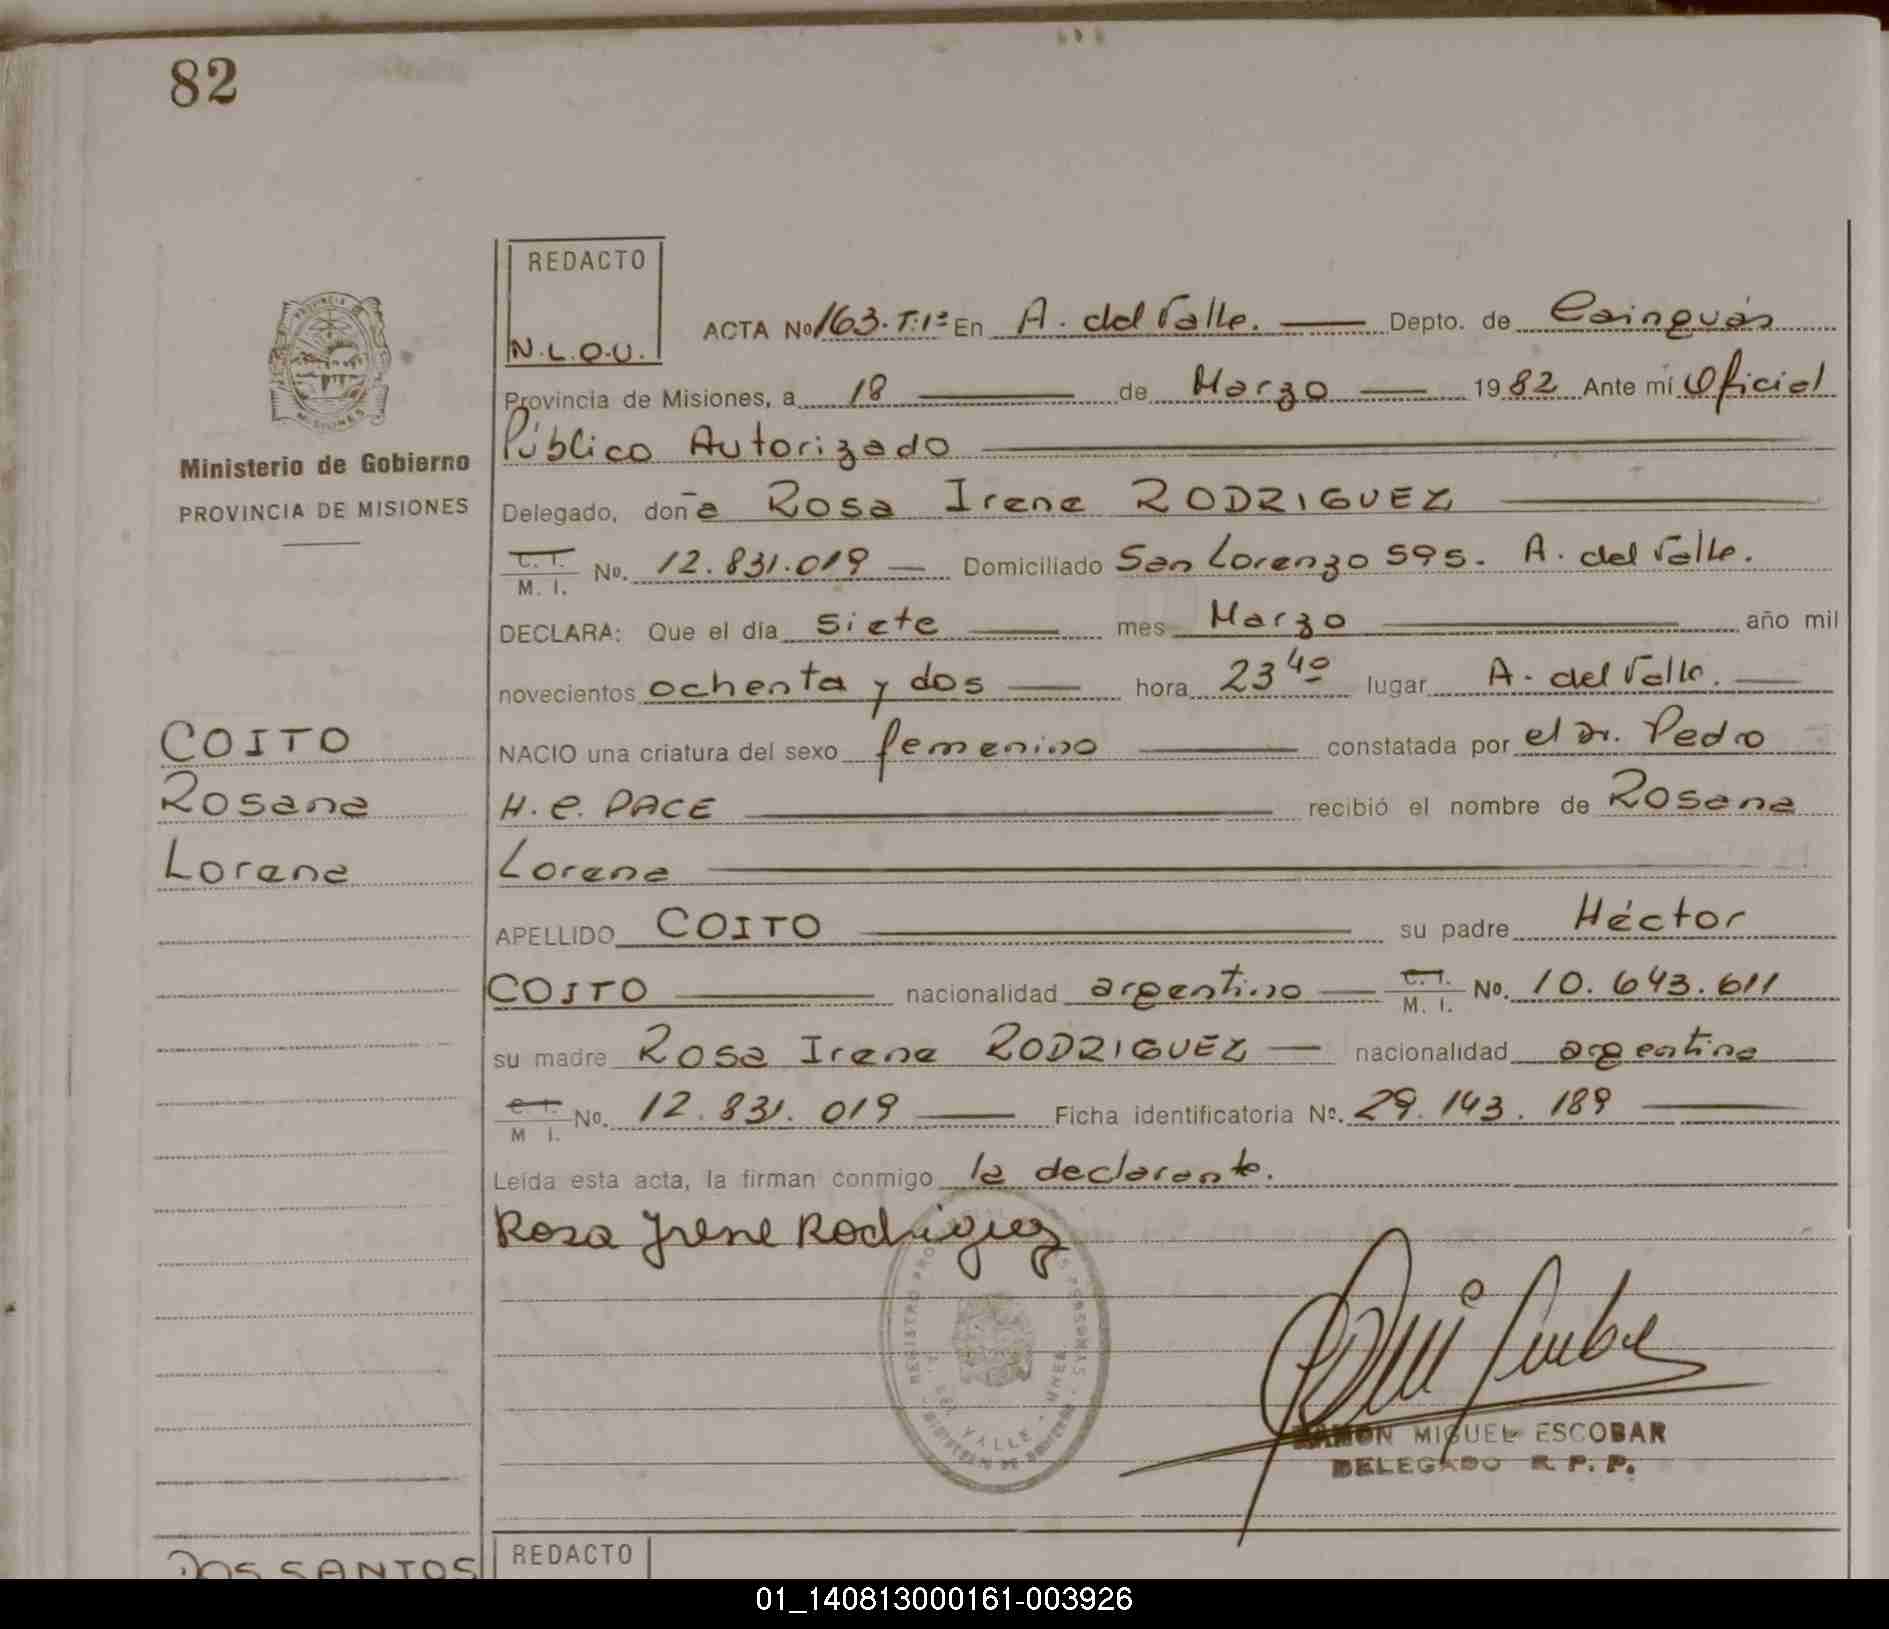 82
REDACTO
N.L.O.U.
ACTA Nº 163.T.1º En A. del Valle. Depto. de Cainguás
Provincia de Misiones, a 18 de Marzo 1982 Ante mí Oficial
Público Autorizado
Ministerio de Gobierno
PROVINCIA DE MISIONES
Delegado, doña Rosa Irene RODRIGUEZ
C. I.
M. I. Nº. 12.831.019 Domiciliado San Lorenzo 595. A. del Valle.
DECLARA: Que el día siete mes Marzo año mil
novecientos ochenta y dos hora 23 40 lugar A. del Valle.
COITO
Rosana
Lorena
NACIO una criatura del sexo femenino constatada por el Dr. Pedro
H. C. PACE recibió el nombre de Rosana
Lorena
APELLIDO COITO su padre Héctor
COITO nacionalidad argentino C. I. Nº. 10.643.611
M. I.
su madre Rosa Irene RODRIGUEZ nacionalidad argentina
C. I.
M I. Nº. 12.831.019 Ficha identificatoria Nº. 29.143.189
Leída esta acta, la firman conmigo la declarante.
Rosa Irene Rodriguez
REGISTRO PRO PERSONAS
DEL VALLE - MNES
RAMON MIGUEL ESCOBAR
DELEGADO R. P. P.
DOS SANTOS
REDACTO
01_140813000161-003926